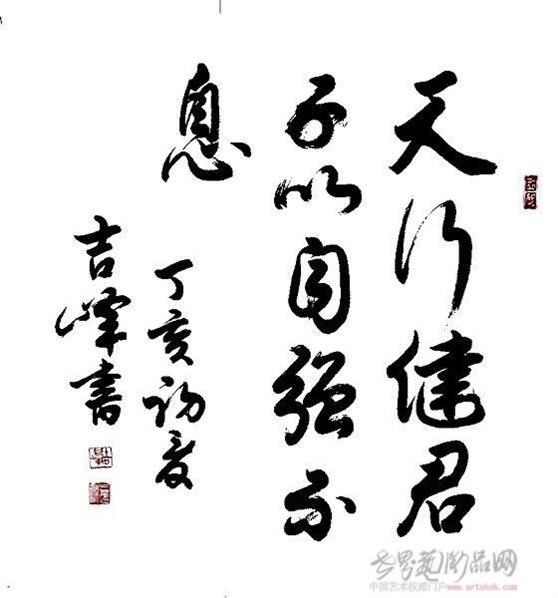 天行健君
子以自强不
息
丁亥初夏
吉峰书
世界艺术品网
中国艺术权威门户 www.artokok.com